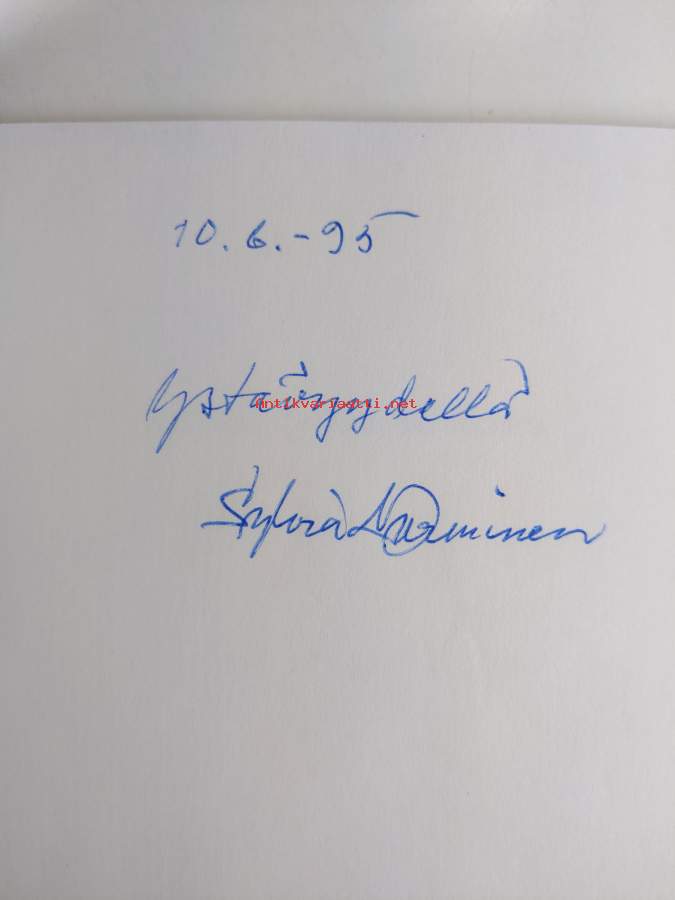 10.6.-95
Ystävyydellä
Antikvariaatti.net
Sylvia Nurminen